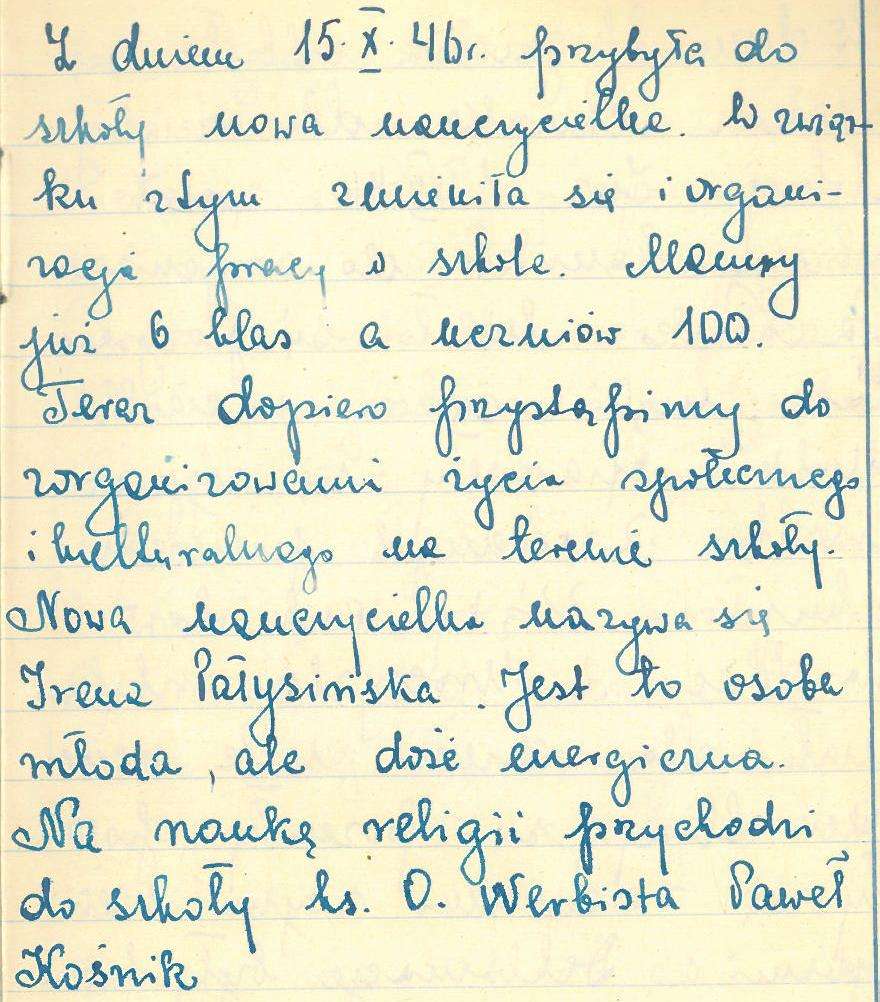 Z dniem 15.X.46r. przybyła do
szkoły nowa nauczycielka. W związ-
ku z tym zmieniła się i organi-
zacja pracy w szkole. Mamy
już 6 klas a uczniów 100.
Teraz dopiero przystąpimy do
zorganizowania życia społecznego
i kulturalnego na terenie szkoły.
Nowa nauczycielka nazywa się
Irena Pałysińska. Jest to osoba
młoda, ale dość energiczna.
Na naukę religii przychodzi
do szkoły ks. O. Werbista Paweł
Kośnik